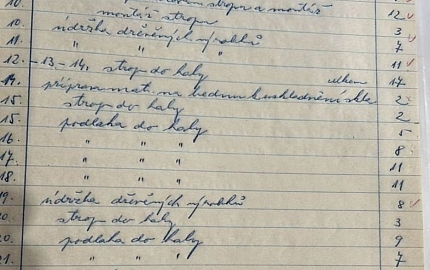 10. strop a montáž 12
montáž stropu
10. údržba dřevěných výrobků 3
11. " " " 7
12. - 13 - 14. strop do haly 11
celkem 17
14. příprava mat. na bednu k uskladnění skla 2
15. strop do haly 2
15. podlaha do haly 5
16. " " " 8
17. " " " 11
18. " " " 11
19. údržba dřevěných výrobků 8
20. strop do haly 3
20. podlaha do haly 9
21. " " " 7